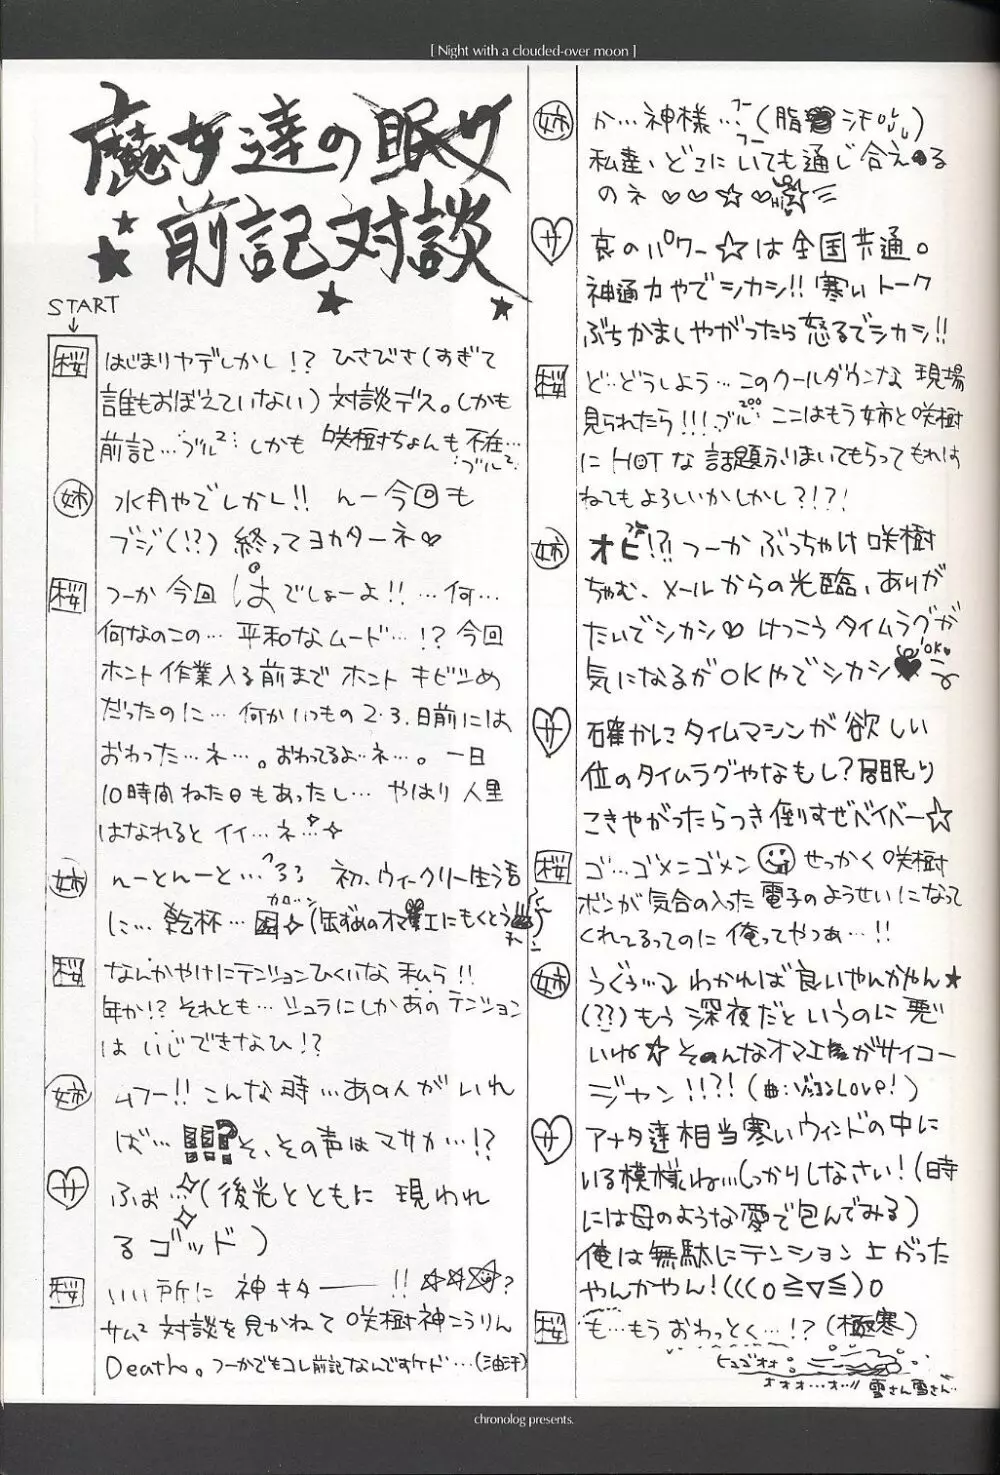 [ Night with a clouded-over moon ]
魔女達の眠り
前記対談
START
桜 はじまりヤデしかし!? ひさびさ(すぎて
誰もおぼえていない)対談デス。しかも
前記…ブル²… しかも 咲樹ちょんも不在…
ブル²
姉 水月やでしかし!! んー今回も
ブジ(!?)終ってヨカターネ♡
桜 つーか今回はでしょーよ!! …何…
何なのこの… 平和なムード…!? 今回
ホント作業入る前まで ホント キビシめ
だったのに… 何かいつもの2・3.日前には
おわった…ネ…。おわってるよ…ネ…。 一日
10時間ねた日もあったし… やはり 人里
はなれると イイ…ネ…
姉 んーとんーと… 初、ウィークリー生活
に… 乾杯…
桜 なんかやけにテンションひくいな 私ら!!
年か!? それとも… ジュラにしかあのテンション
は いじできなひ!?
姉 ムフー!! こんな時…あの人がいれ
ば… !!!? そ、その声はマサカ…!?
サ ふお…(後光とともに 現われ
るゴッド)
桜 いい所に 神キター!! ☆☆☆?
サム² 対談を見かねて 咲樹神こうりん
Death。つーかでもコレ前記なんですケド…(油汗)
姉 か…神様…(脂汗)
フー
フー
私達、どこにいても通じ合える
のネ ♡♡☆♡
サ 哀のパワー☆は全国共通。
神通力やでシカシ!! 寒いトーク
ぶちかましやがったら怒るでシカシ!!
桜 ど…どうしよう…このクールダウンな 現場
見られたら!!! ブル²⁰⁰… ここはもう姉と咲樹
に HOTな 話題ふりまいてもらってもれは
ねてもよろしいかしかし?!?!
姉 オビ!?! つーか ぶっちゃけ 咲樹
ちゃむ、メールからの光臨、ありが
たいでシカシ♡ けっこう タイムラグが
気になるがOKやでシカシ♥
OK♥
サ 確かにタイムマシンが 欲しい
位のタイムラグやなもし? 居眠り
こきやがったらつき倒すぜベイベー☆
桜 ゴ…ゴメニゴメン せっかく 咲樹
ボンが気合の入った 電子のようせいになって
くれてるってのに 俺ってやつあ…!!
姉 うぐぅ… わかれば良いやんかやん★
(??)もう 深夜だと いうのに 悪
いね☆ そのんなオマエ達がサイコー
ジャン!!?!
サ アナタ達相当寒いウィンドの中に
いる模様ね…しっかりしなさい!(時
には母のような愛で包んでみる)
俺は無駄にテンション上がった
やんかやん!(((o≧▽≦)o
桜 も…もう おわっとく…!?(極寒)
ヒュゴオオ
オオオ…オ…!!
雪さん雪さん…
chronolog presents.